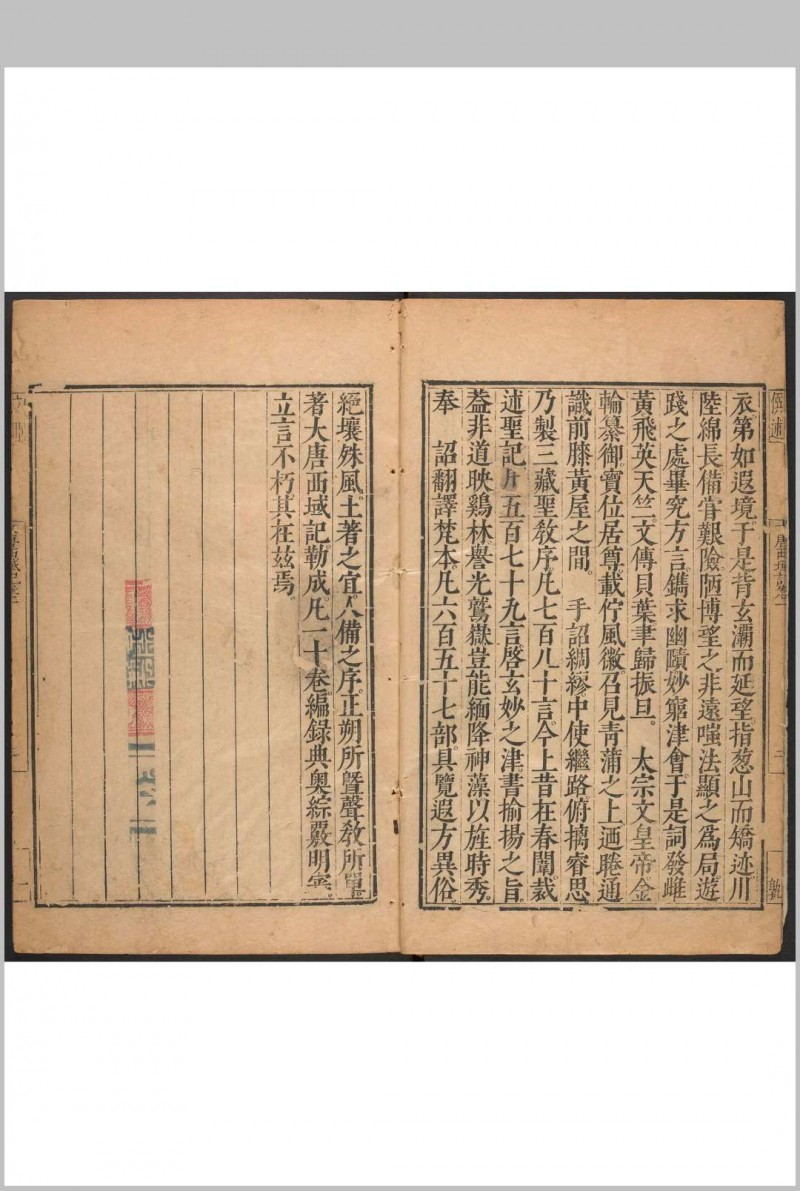 衣第如遐境于是背玄灞而延望指葱山而矯迹川
陸綿長備甞艱險陋博望之非遠嗤法顯之爲局遊
踐之處畢究方言鐫求幽賾妙窮津會于是詞發雌
黃飛英天竺文傳貝葉聿歸振旦。 太宗文皇帝金
輪纂御寶位居尊載佇風徽召見青蒲之上廼睠通
識前膝黃屋之間。 手詔綢繆中使繼路俯摛睿思
乃製三藏聖教序凡七百八十言今上昔在春闈裁
述聖記凡五百七十九言啓玄妙之津書揄揚之旨。
葢非道映鷄林譽光鷲嶽豈能緬降神藻以旌時秀。
奉 詔翻譯梵本凡六百五十七部具覽遐方異俗
絕壤殊風土著之宜人備之序正朔所暨聲教所覃
著大唐西域記勒成凡一十卷編錄典奧綜覈明審。
立言不朽其在茲焉。